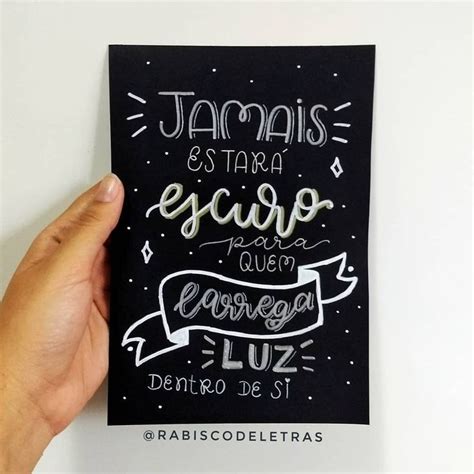 JAMAIS
ESTARÁ
escuro
para
QUEM
Carrega
LUZ
DENTRO DE SI
@RABISCODELETRAS